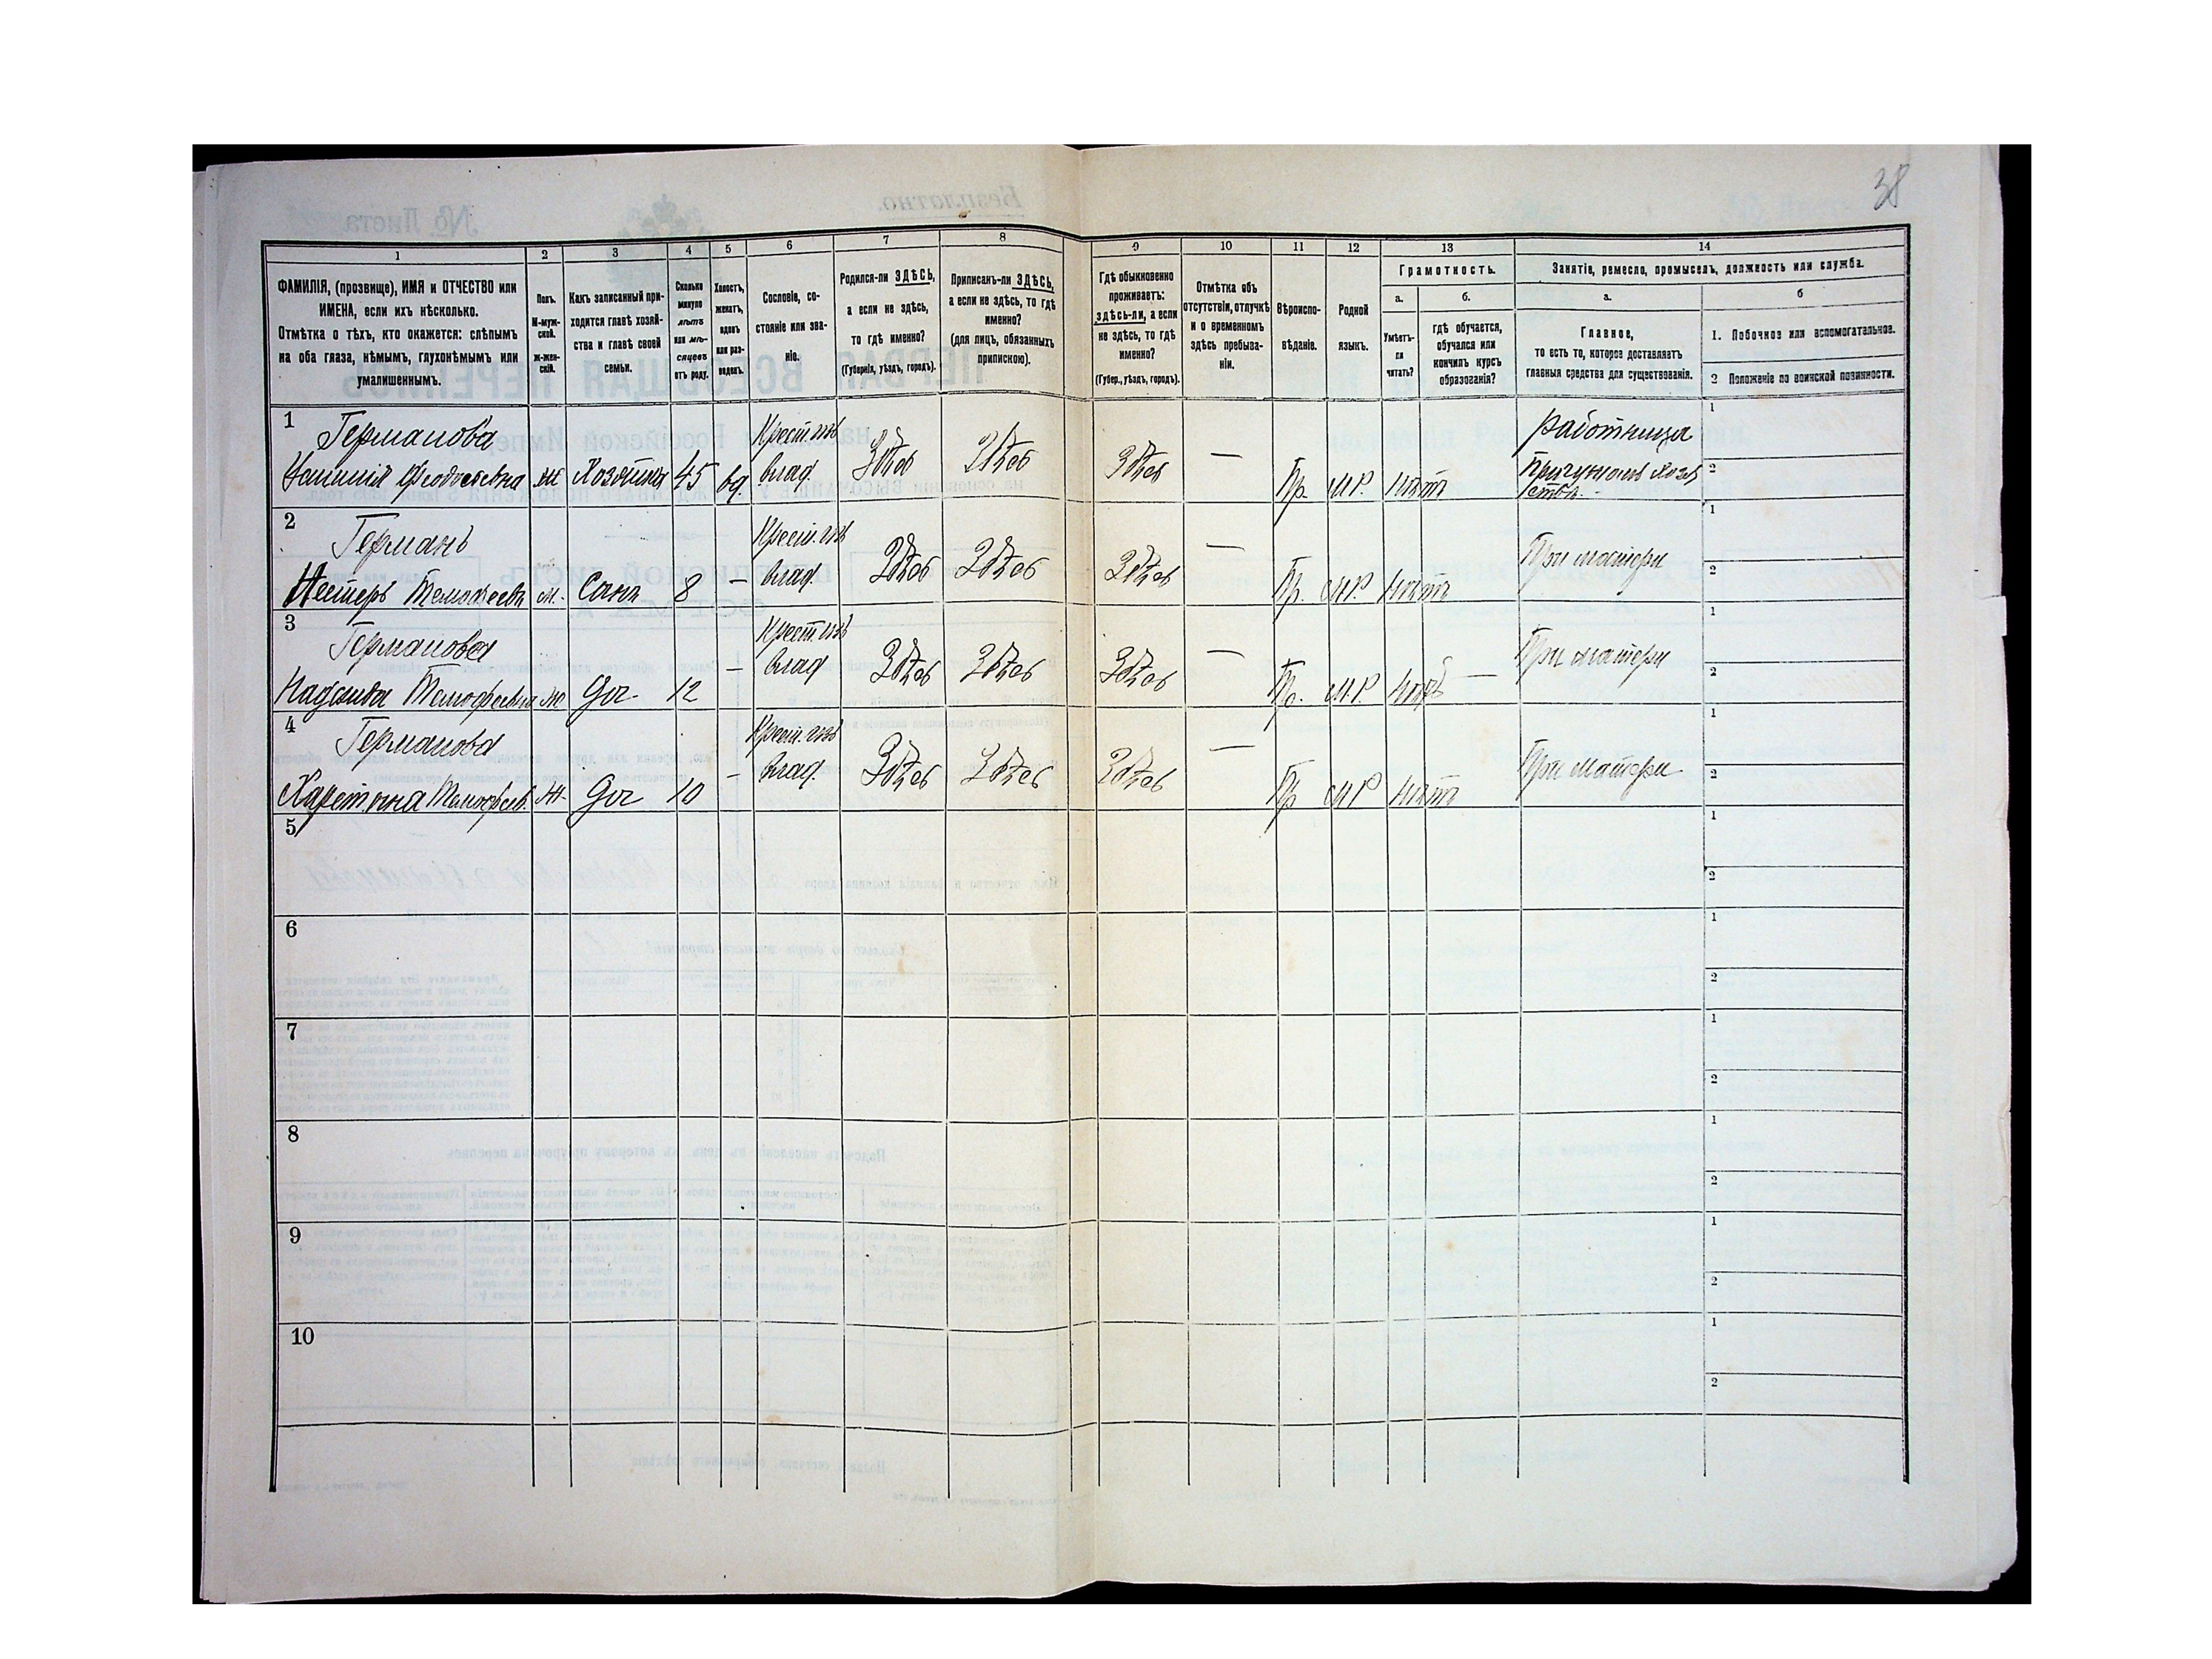 38
1 2 3 4 5 6 7 8 9 10 11 12 13 14
ФАМИЛІЯ, (прозвище), ИМЯ и ОТЧЕСТВО или
ИМЕНА, если ихъ нѣсколько.
Отмѣтка о тѣхъ, кто окажется: слѣпымъ
на оба глаза, нѣмымъ, глухонѣмымъ или
умалишеннымъ.
Полъ.
М-муж-
ской.
ж-жен-
скій.
Какъ записанный при-
ходится главѣ хозяй-
ства и главѣ своей
семьи.
Сколько
минуло
лѣтъ
или мѣ-
сяцевъ
отъ роду.
Холостъ,
женатъ,
вдовъ
или раз-
веденъ.
Сословіе, со-
стояніе или зва-
ніе.
Родился-ли ЗДѢСЬ,
а если не здѣсь,
то гдѣ именно?
(Губернія, уѣздъ, городъ).
Приписанъ-ли ЗДѢСЬ,
а если не здѣсь, то гдѣ
именно?
(для лицъ, обязанныхъ
припискою).
Гдѣ обыкновенно
проживаетъ:
здѣсь-ли, а если
не здѣсь, то гдѣ
именно?
(Губер., уѣздъ, городъ).
Отмѣтка объ
отсутствіи, отлучкѣ
и о временномъ
здѣсь пребыва-
ніи.
Вѣроиспо-
вѣданіе.
Родной
языкъ.
Грамотность.
а.
Умѣетъ-
ли
читать?
б.
гдѣ обучается,
обучался или
кончилъ курсъ
образованія?
Занятіе, ремесло, промыселъ, должность или служба.
а.
Главное,
то есть то, которое доставляетъ
главныя средства для существованія.
б
1. Побочное или вспомогательное.
2 Положеніе по воинской повинности.
1 Германова Крест. изъ Работница 1
Феодосьевна Ж Хозяйка 45 вд. влад. Здѣсь Здѣсь Здѣсь — Пр. М.Р. нѣтъ 2
2 Германъ Крест. изъ 1
Нестеръ Тимофеевъ М. Сынъ 8 — влад. Здѣсь Здѣсь Здѣсь — Пр. М.Р. нѣтъ При матери 2
3 Германова Крест. изъ 1
Надежда Тимофеевна Ж Доч 12 — влад Здѣсь Здѣсь Здѣсь — Пр. М.Р. нѣтъ — При матери 2
4 Германова Крест. изъ 1
Тимофеев. Ж. Доч 10 — влад. Здѣсь Здѣсь Здѣсь — Пр М.Р нѣтъ При матери 2
5 1
2
6 1
2
7 1
2
8 1
2
9 1
2
10 1
2